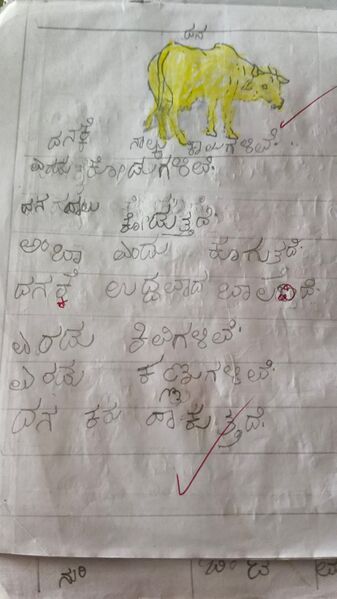 ದನ
ದನಕ್ಕೆ ನಾಲ್ಕು ಕಾಲುಗಳಿವೆ.
ಎರಡು ಕೋಡುಗಳಿವೆ.
ದನ ಹಾಲು ಕೊಡುತ್ತದೆ.
ಅಂಬಾ ಎಂದು ಕೂಗುತ್ತದೆ.
ದನಕ್ಕೆ ಉದ್ದವಾದ ಬಾಲವಿದೆ.
ಎರಡು ಕಿವಿಗಳಿವೆ.
ಎರಡು ಕಣ್ಣುಗಳಿವೆ.
ದನ ಕರು ಹಾಕುತ್ತದೆ.